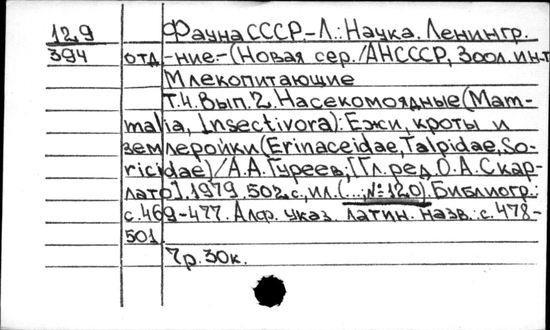 129 Фауна СССР.-Л.: Наука. Ленингр.
394 отд-ние.-(Новая сер./АНСССР, Зоол. ин-т
Млекопитающие
Т.4. Вып.2. Насекомоядные (Mam-
malia, Insectivora): Ежи, кроты и
землеройки (Erinaceidae, Talpidae, So-
ricidae)/А.А.Гуреев; [Гл. ред. О.А. Скар-
лато]. 1979 502 с., ил. (...; №120). Библиогр.:
с. 469-477. Алф. указ. латин. назв.: с. 478-
501.
7р. 30к.